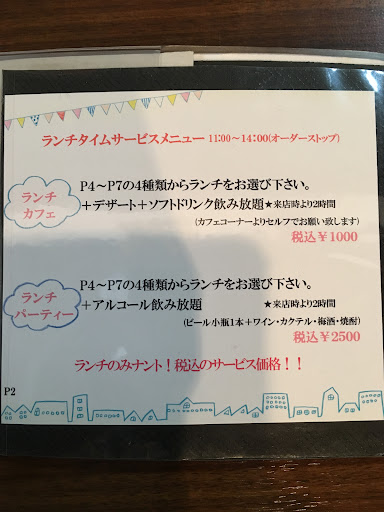 ランチタイムサービスメニュー 11:00～14:00(オーダーストップ)
ランチ
カフェ
P4～P7の4種類からランチをお選び下さい。
＋デザート＋ソフトドリンク飲み放題★来店時より2時間
(カフェコーナーよりセルフでお願い致します)
税込￥1000
ランチ
パーティー
P4～P7の4種類からランチをお選び下さい。
＋アルコール飲み放題 ★来店時より2時間
(ビール小瓶1本＋ワイン・カクテル・梅酒・焼酎)
税込￥2500
ランチのみナント！税込のサービス価格！！
P2